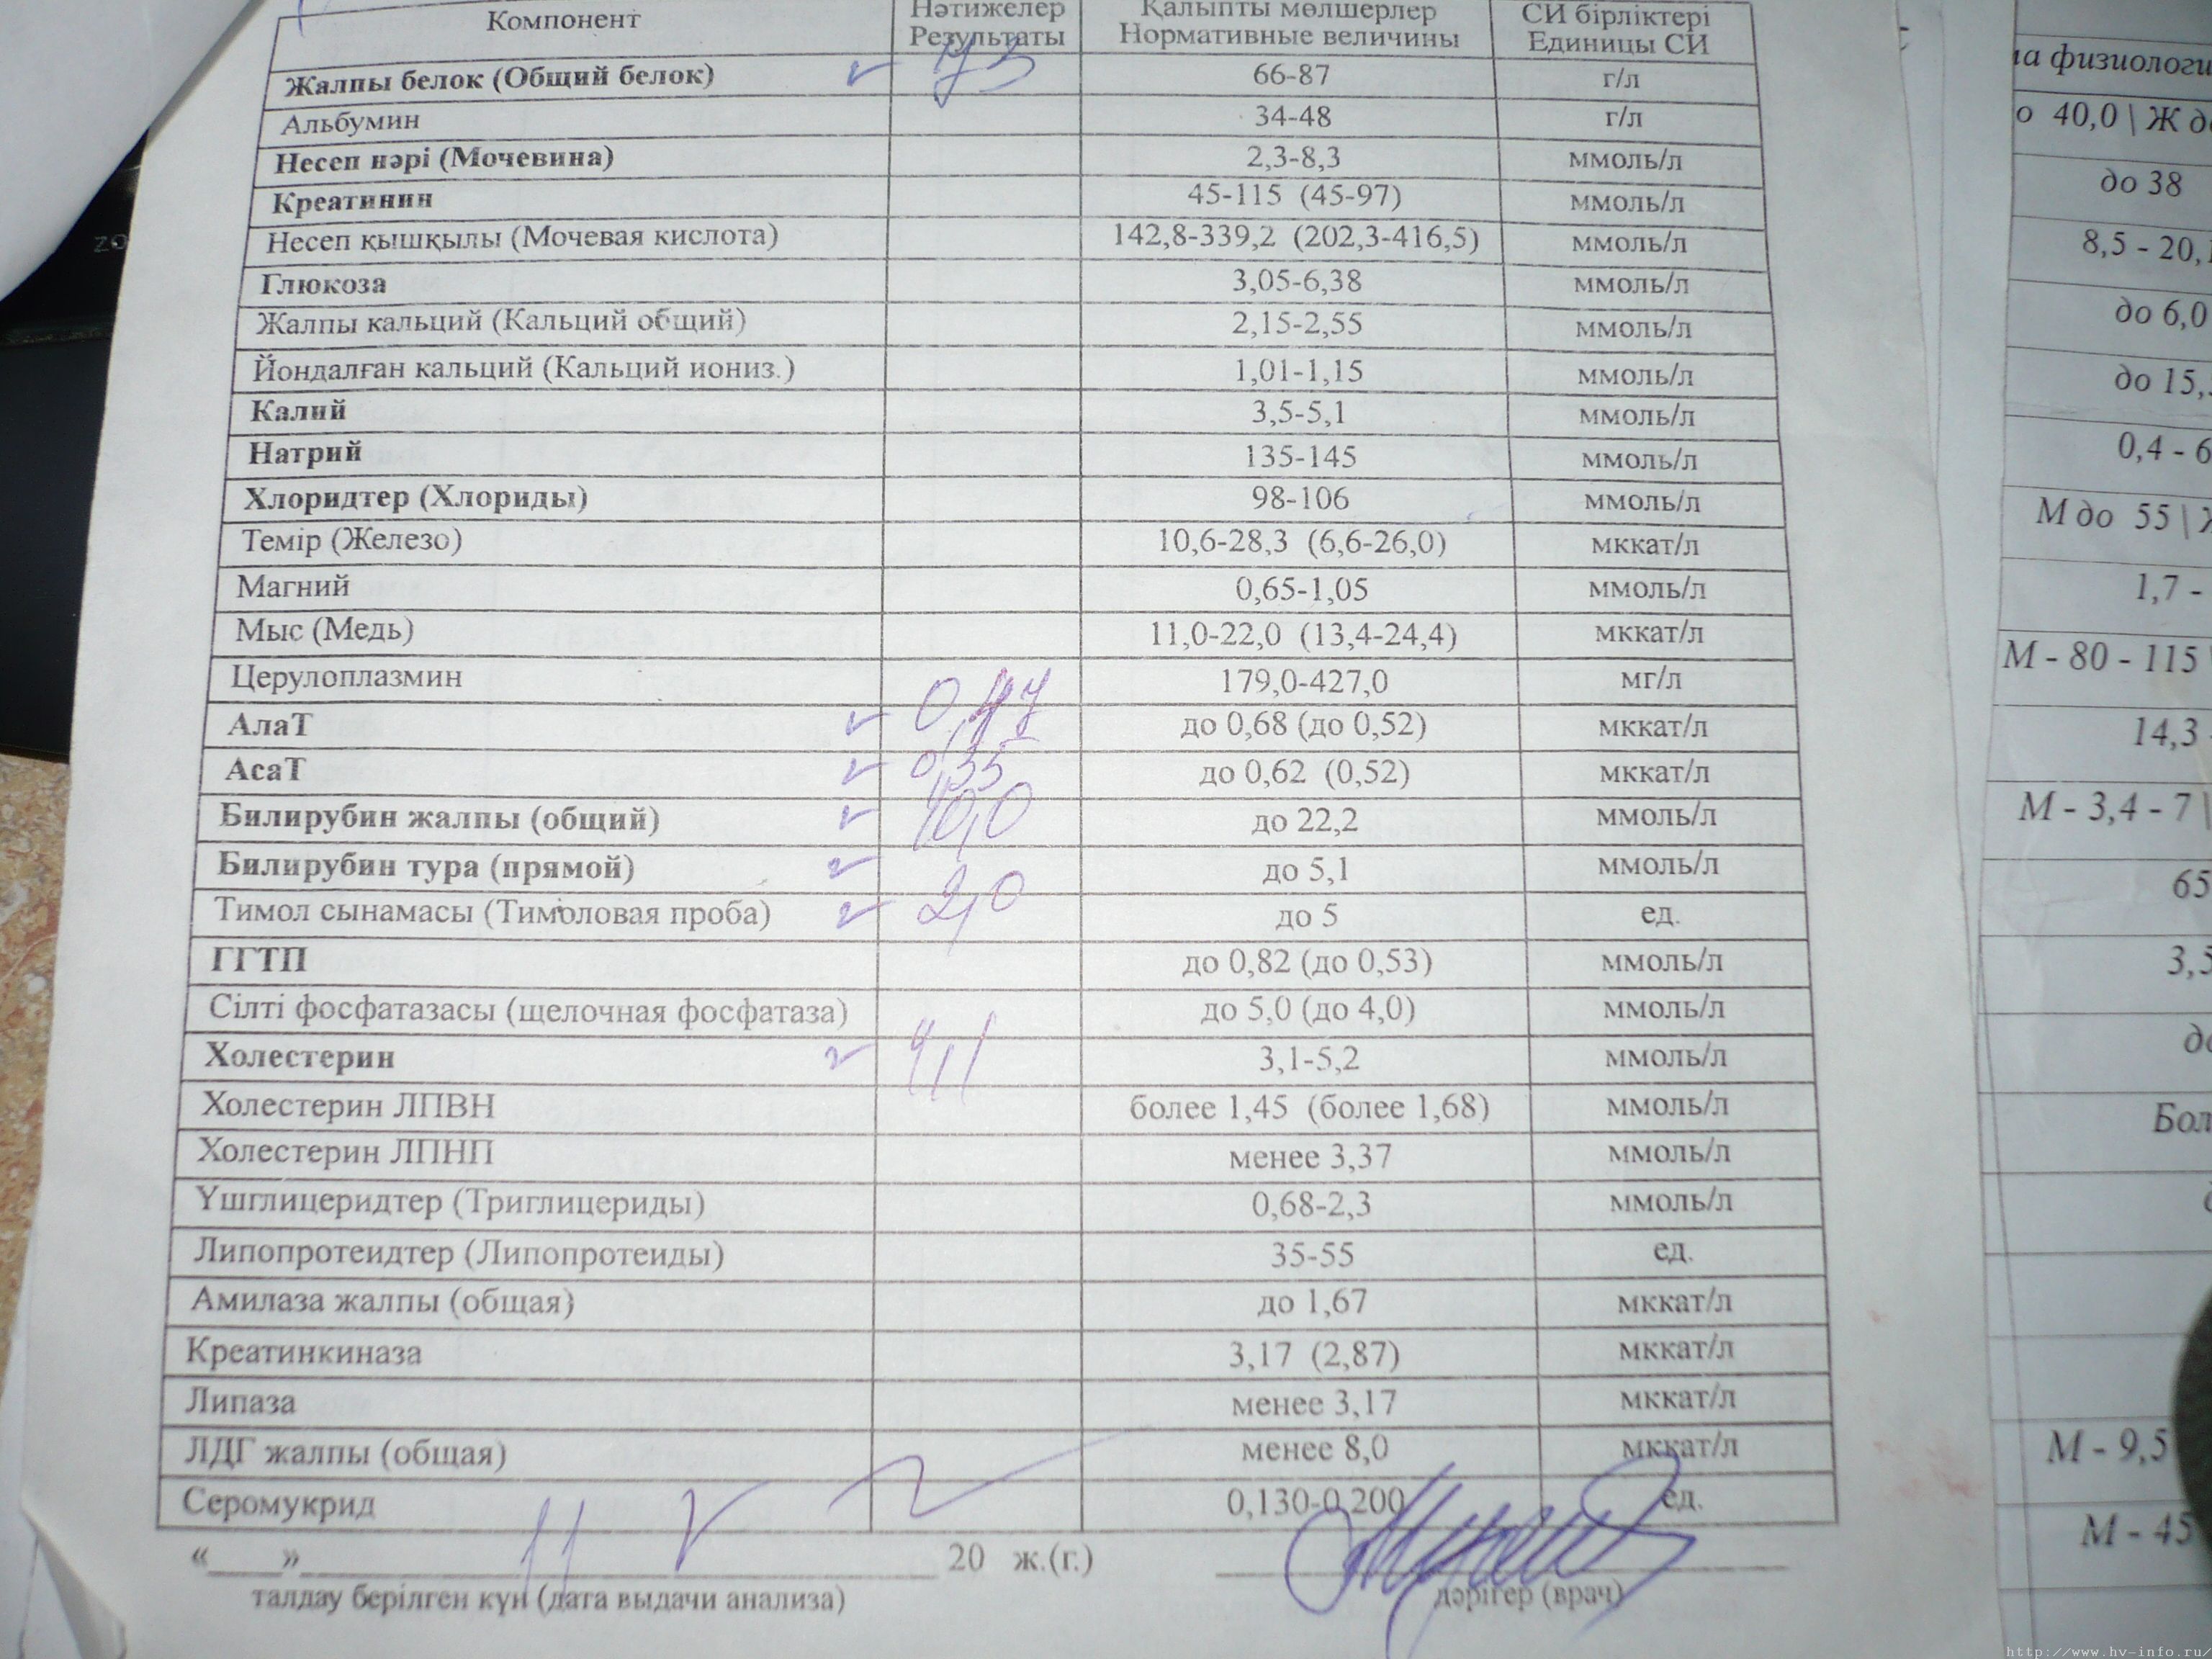 Компонент Нәтижелер Қалыпты мөлшерлер СИ бірліктері
Результаты Нормативные величины Единицы СИ
Жалпы белок (Общий белок) 73 66-87 г/л
Альбумин 34-48 г/л
Несеп нәрі (Мочевина) 2,3-8,3 ммоль/л
Креатинин 45-115 (45-97) ммоль/л
Несеп қышқылы (Мочевая кислота) 142,8-339,2 (202,3-416,5) ммоль/л
Глюкоза 3,05-6,38 ммоль/л
Жалпы кальций (Кальций общий) 2,15-2,55 ммоль/л
Йондалған кальций (Кальций иониз.) 1,01-1,15 ммоль/л
Калий 3,5-5,1 ммоль/л
Натрий 135-145 ммоль/л
Хлоридтер (Хлориды) 98-106 ммоль/л
Темір (Железо) 10,6-28,3 (6,6-26,0) мккат/л
Магний 0,65-1,05 ммоль/л
Мыс (Медь) 11,0-22,0 (13,4-24,4) мккат/л
Церулоплазмин 179,0-427,0 мг/л
АлаТ до 0,68 (до 0,52) мккат/л
АсаТ 0,35 до 0,62 (0,52) мккат/л
Билирубин жалпы (общий) 10,0 до 22,2 ммоль/л
Билирубин тура (прямой) до 5,1 ммоль/л
Тимол сынамасы (Тимоловая проба) 2,0 до 5 ед.
ГГТП до 0,82 (до 0,53) ммоль/л
Сілті фосфатазасы (щелочная фосфатаза) до 5,0 (до 4,0) ммоль/л
Холестерин 4,1 3,1-5,2 ммоль/л
Холестерин ЛПВН более 1,45 (более 1,68) ммоль/л
Холестерин ЛПНП менее 3,37 ммоль/л
Үшглицеридтер (Триглицериды) 0,68-2,3 ммоль/л
Липопротеидтер (Липопротеиды) 35-55 ед.
Амилаза жалпы (общая) до 1,67 мккат/л
Креатинкиназа 3,17 (2,87) мккат/л
Липаза менее 3,17 мккат/л
ЛДГ жалпы (общая) менее 8,0 мккат/л
Серомукрид 0,130-0,200 ед.
«____» 11 20 ж.(г.)
талдау берілген күн (дата выдачи анализа) дәрігер (врач)
физиологи
40,0 | Ж
до 38
8,5 - 20,
до 6,0
до 15,
0,4 - 6
М до 55 |
1,7 -
М - 80 - 115
14,3
М - 3,4 - 7
65
3,5
Бол
М - 9,5
М - 45
http://www.hv-info.ru/